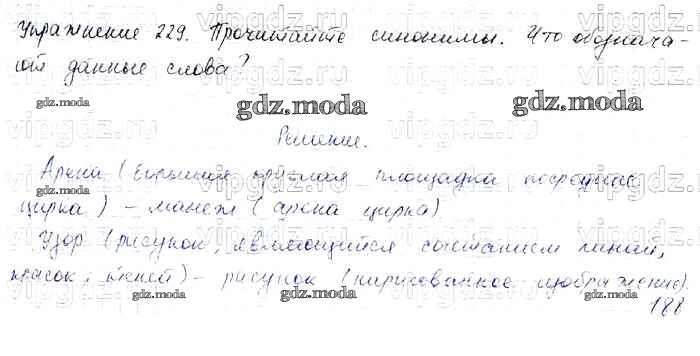 Упражнение 229. Прочитайте синонимы. Что обознача-
ют данные слова?
gdz.moda
Решение.
Арена (большая круглая площадка посредине
цирка) – манеж (арена цирка)
Узор (рисунок, являющийся сочетанием линий,
красок, теней) – рисунок (нарисованное изображение).
188